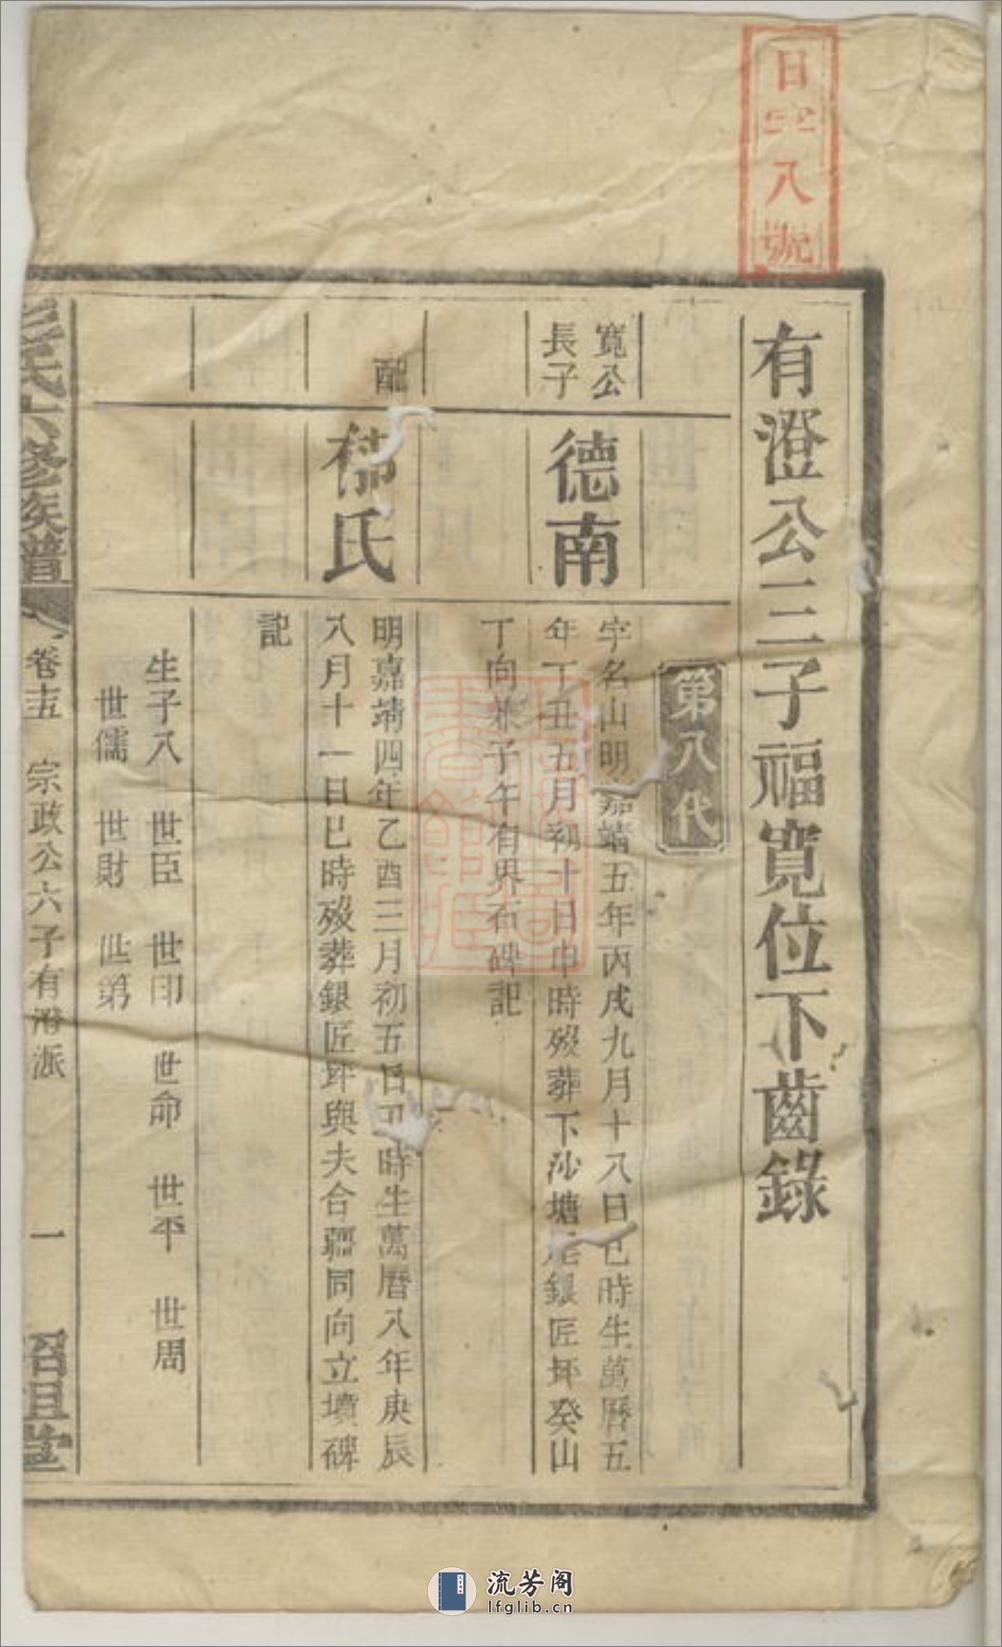 日字八號
有澄公三子福寬位下齒錄
第八代
寬公
長子
德南
字名山明嘉靖五年丙戌九月十八日巳時生萬曆五
年丁丑五月初十日申時歿葬下沙塘尾銀匠坪癸山
丁向兼子午有界石碑記
配
氏
明嘉靖四年乙酉三月初五日丑時生萬曆八年庚辰
八月十一日巳時歿葬銀匠坪與夫合疆同向立墳碑
記
生子八 世臣 世印 世命 世平 世周
世儒 世財 世第
氏六修族譜
卷十五 宗政公六子有 派
一
昭祖堂
流芳阁
lfglib.cn